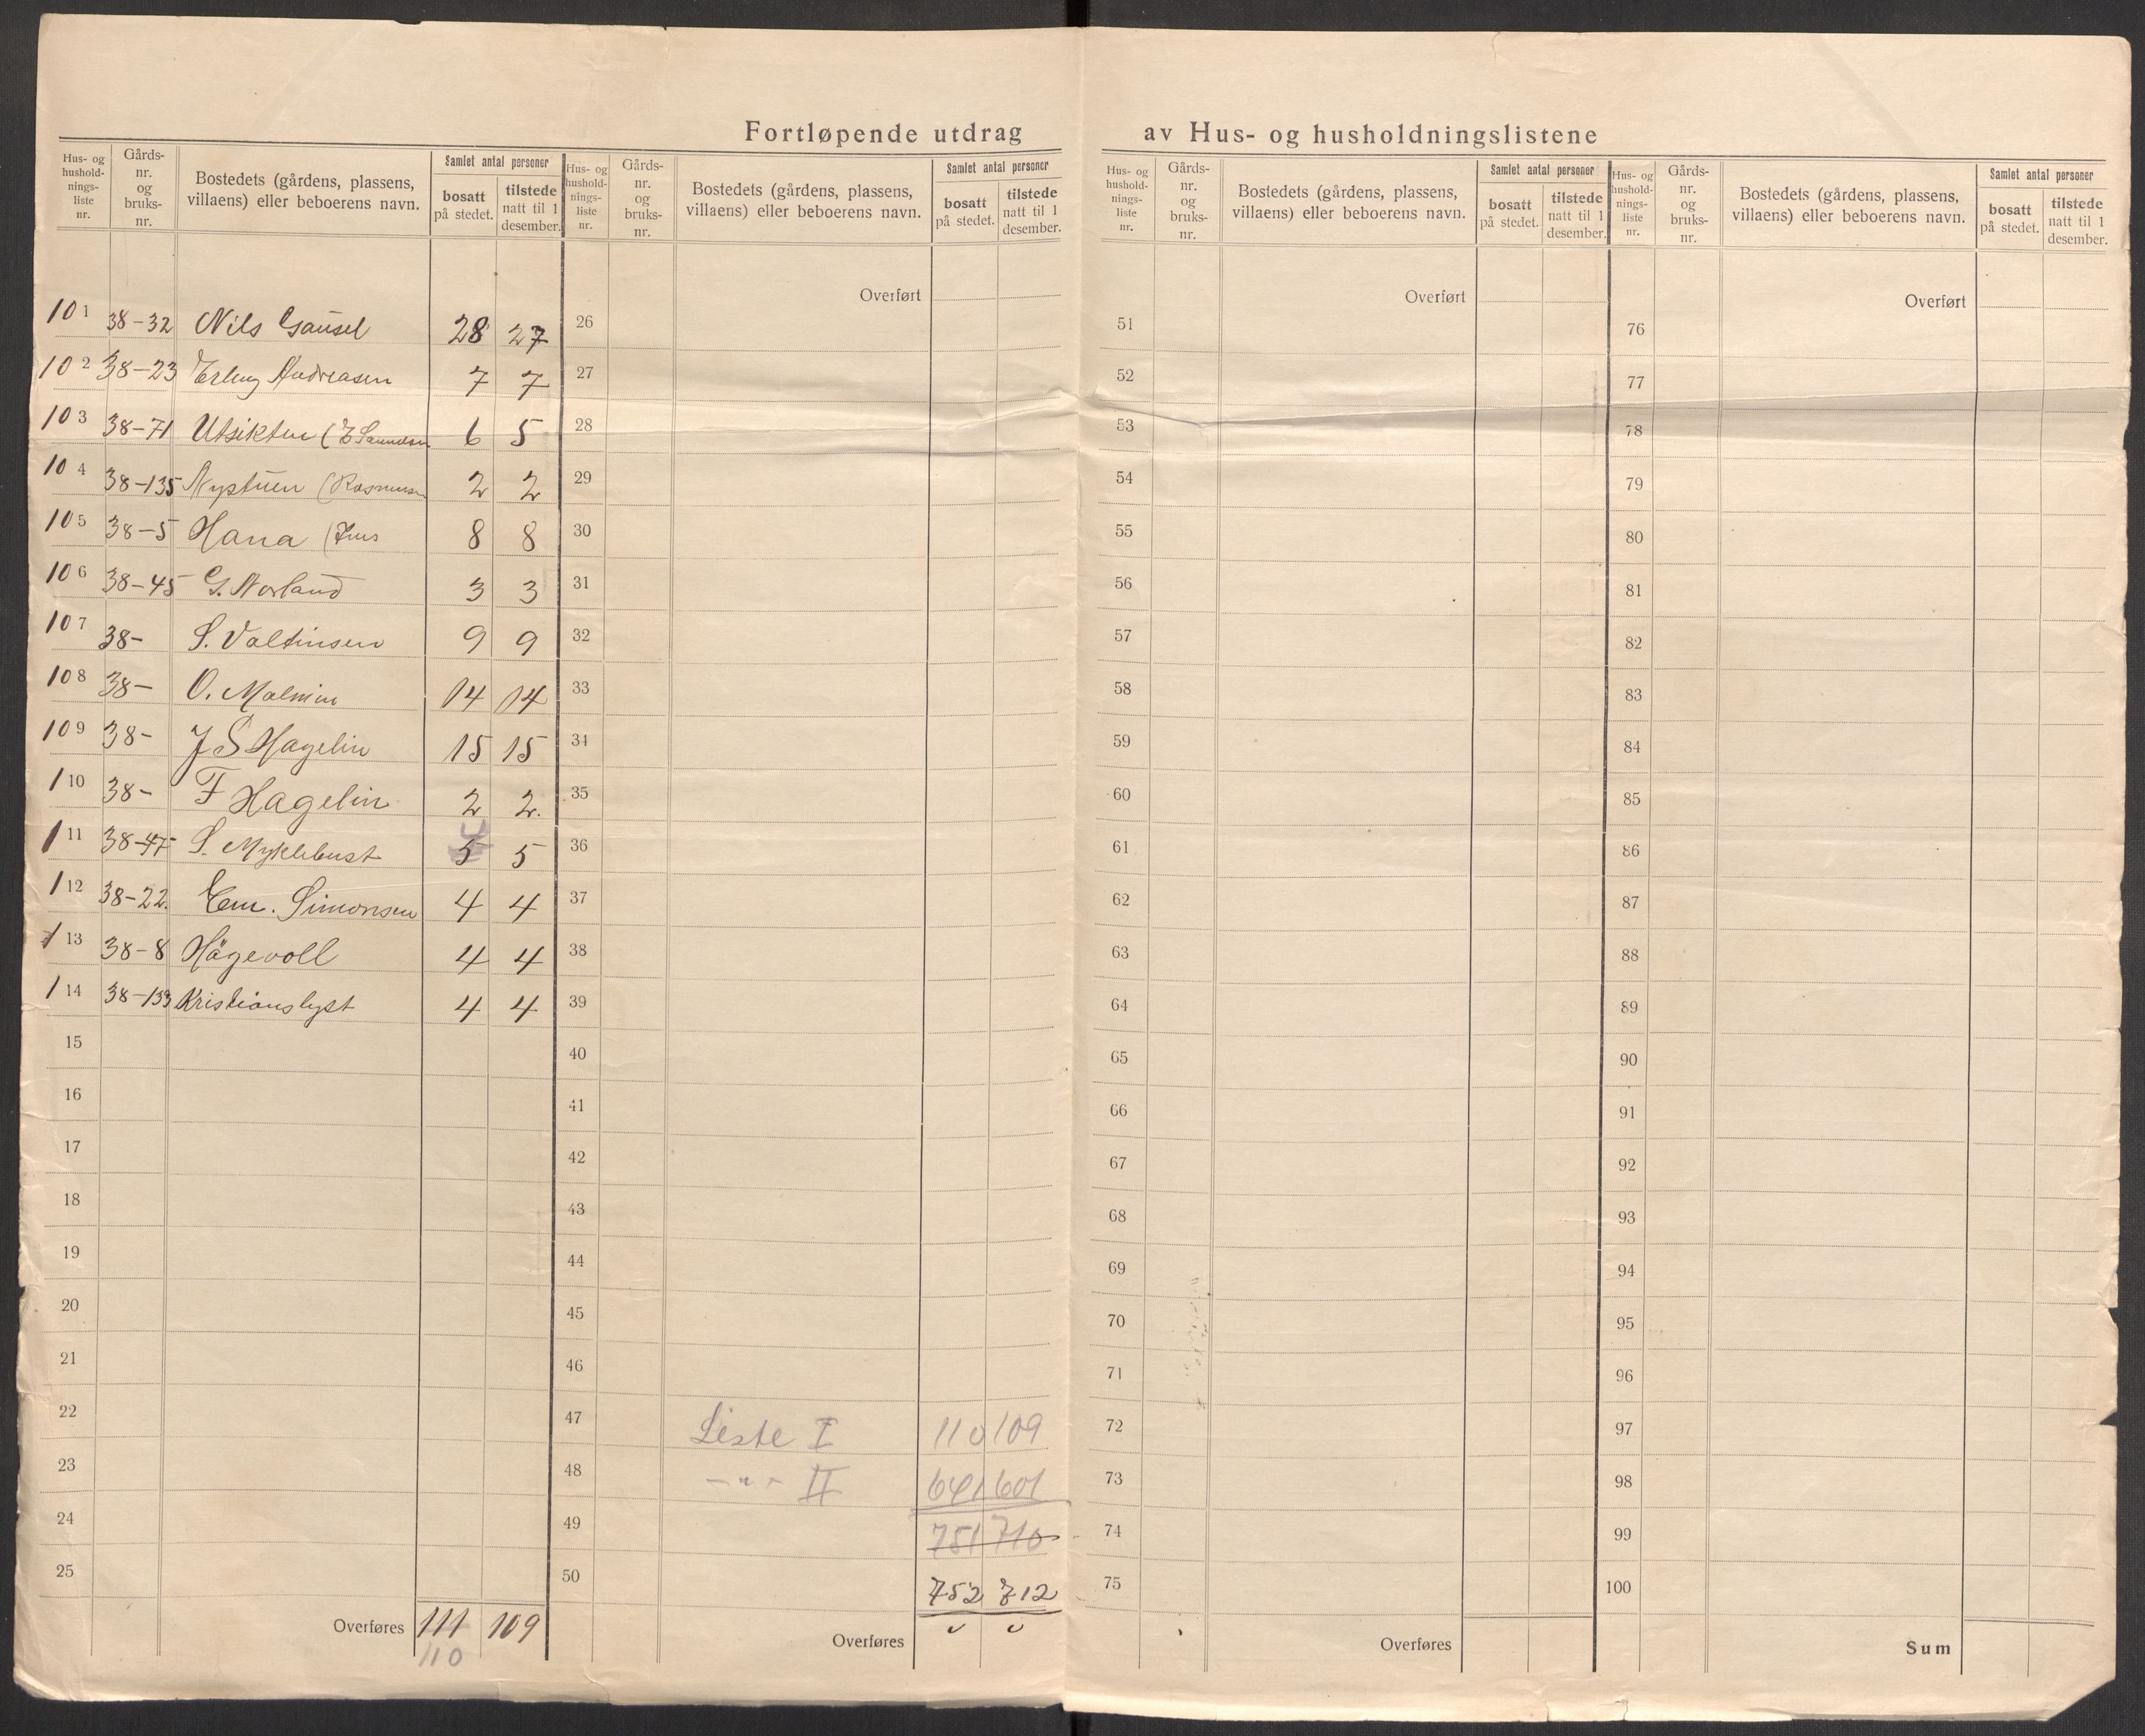 Fortløpende utdrag av Hus- og husholdningslistene
Hus- og hushold-nings-liste nr. Gårds-nr. og bruks-nr. Bostedets (gårdens, plassens, villaens) eller beboerens navn. Samlet antal personer bosatt på stedet. tilstede natt til 1 desember.
101 38-32 Nils Gausel 28 27
102 38-23 Erling Andreasen 7 7
103 38-71 Utsikten ( 6 5
104 38-135 Nystuen (Rasmussen 2 2
105 38-5 Hana (Jens 8 8
106 38-45 G. Norland 3 3
107 38- S. Valtinsen 9 9
108 38- O. Malmin 14 14
109 38- J S Hagelin 15 15
110 38- F Hagelin 2 2.
111 38-47 S. Myklebust 5 4 5
112 38-22. Em. Simonsen 4 4
113 38-8 Hågevoll 4 4
114 38-133 Kristianslyst 4 4
15
16
17
18
19
20
21
22
23
24
25
Overføres 111 109
110
Hus- og hushold-nings-liste nr. Gårds-nr. og bruks-nr. Bostedets (gårdens, plassens, villaens) eller beboerens navn. Samlet antal personer bosatt på stedet. tilstede natt til 1 desember.
Overført
26
27
28
29
30
31
32
33
34
35
36
37
38
39
40
41
42
43
44
45
46
47 Liste I 110 109
48 -"- II 641 601
49 751 710
50 752 712
Overføres
Hus- og hushold-nings-liste nr. Gårds-nr. og bruks-nr. Bostedets (gårdens, plassens, villaens) eller beboerens navn. Samlet antal personer bosatt på stedet. tilstede natt til 1 desember.
Overført
51
52
53
54
55
56
57
58
59
60
61
62
63
64
65
66
67
68
69
70
71
72
73
74
75
Overføres
Hus- og hushold-nings-liste nr. Gårds-nr. og bruks-nr. Bostedets (gårdens, plassens, villaens) eller beboerens navn. Samlet antal personer bosatt på stedet. tilstede natt til 1 desember.
Overført
76
77
78
79
80
81
82
83
84
85
86
87
88
89
90
91
92
93
94
95
96
97
98
99
100
Sum